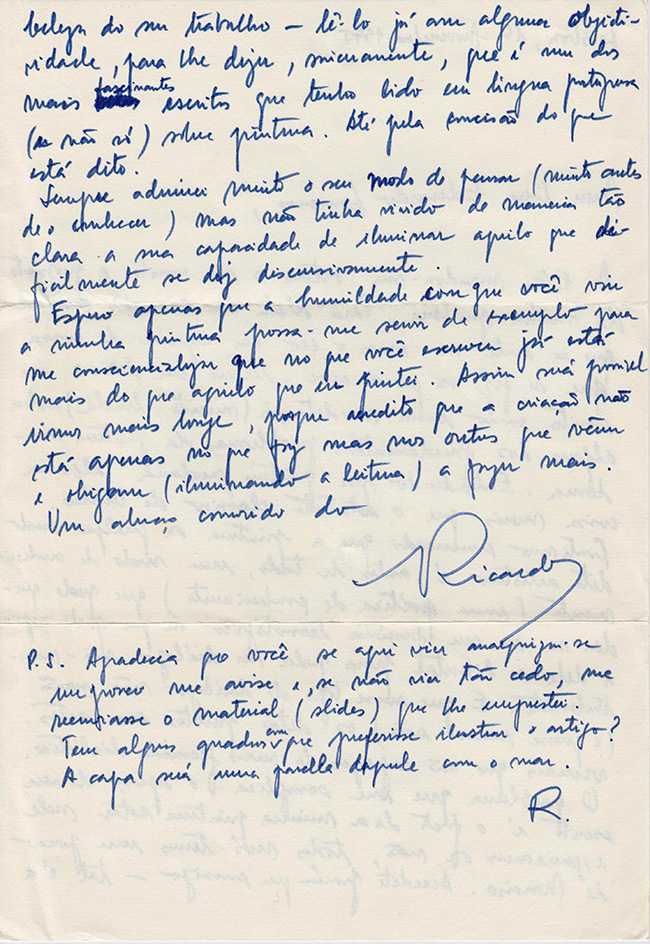 beleza do seu trabalho – lê-lo já com alguma objecti-
vidade, para lhe dizer, sinceramente, que é um dos
mais fascinantes escritos que tenho lido em língua portuguesa
(e não só) sobre pintura. Até pela concisão do que
está dito.
Sempre admirei muito o seu modo de pensar (muito antes
de o conhecer) mas não tinha vivido de maneira tão
clara a sua capacidade de iluminar aquilo que di-
ficilmente se diz discursivamente
Espero apenas que a humildade com que você viu
a minha pintura possa-me servir de exemplo para
me consciencializar que no que você escreveu já está
mais do que aquilo que eu pintei. Assim será possível
irmos mais longe, porque acredito que a criação não
está apenas no que faz mas nos outros que vêem
e obrigam (iluminando a leitura) a fazer mais.
Um abraço comovido do
Ricardo
P.S. Agradecia que você, se aqui vier
me avise e, se não vier tão cedo, me
reenviasse o material (slides) que lhe emprestei.
Tem alguns quadros com que preferisse ilustrar o artigo?
A capa será uma parella daquele com o mar.
R.